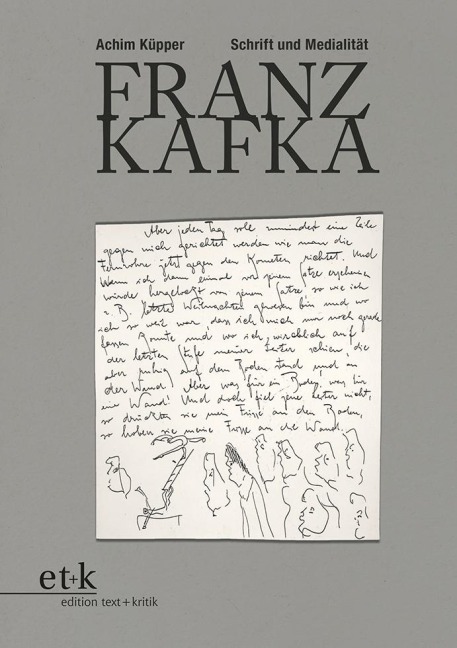 Achim Küpper Schrift und Medialität
FRANZ
KAFKA
Aber jeden Tag soll zumindest eine Zeile
gegen mich gerichtet werden wie man die
Fernrohre jetzt gegen den Kometen richtet. Und
Wenn ich dann einmal vor jenem Satze erscheinen
würde hergelockt von jenem Satze so wie ich
z. B. letzte Weihnachten gewesen bin und wo
ich so weit war, dass ich mich nur noch gerade
fassen konnte und wo ich wirklich auf
der letzten Stufe meiner Leiter schien, die
aber ruhig auf dem Boden stand und an
der Wand. Aber was für ein Boden, was für
eine Wand! Und doch fiel jene Leiter nicht,
so drückten sie meine Füsse an den Boden,
so hoben sie meine Füsse an die Wand.
et+k
edition text+kritik